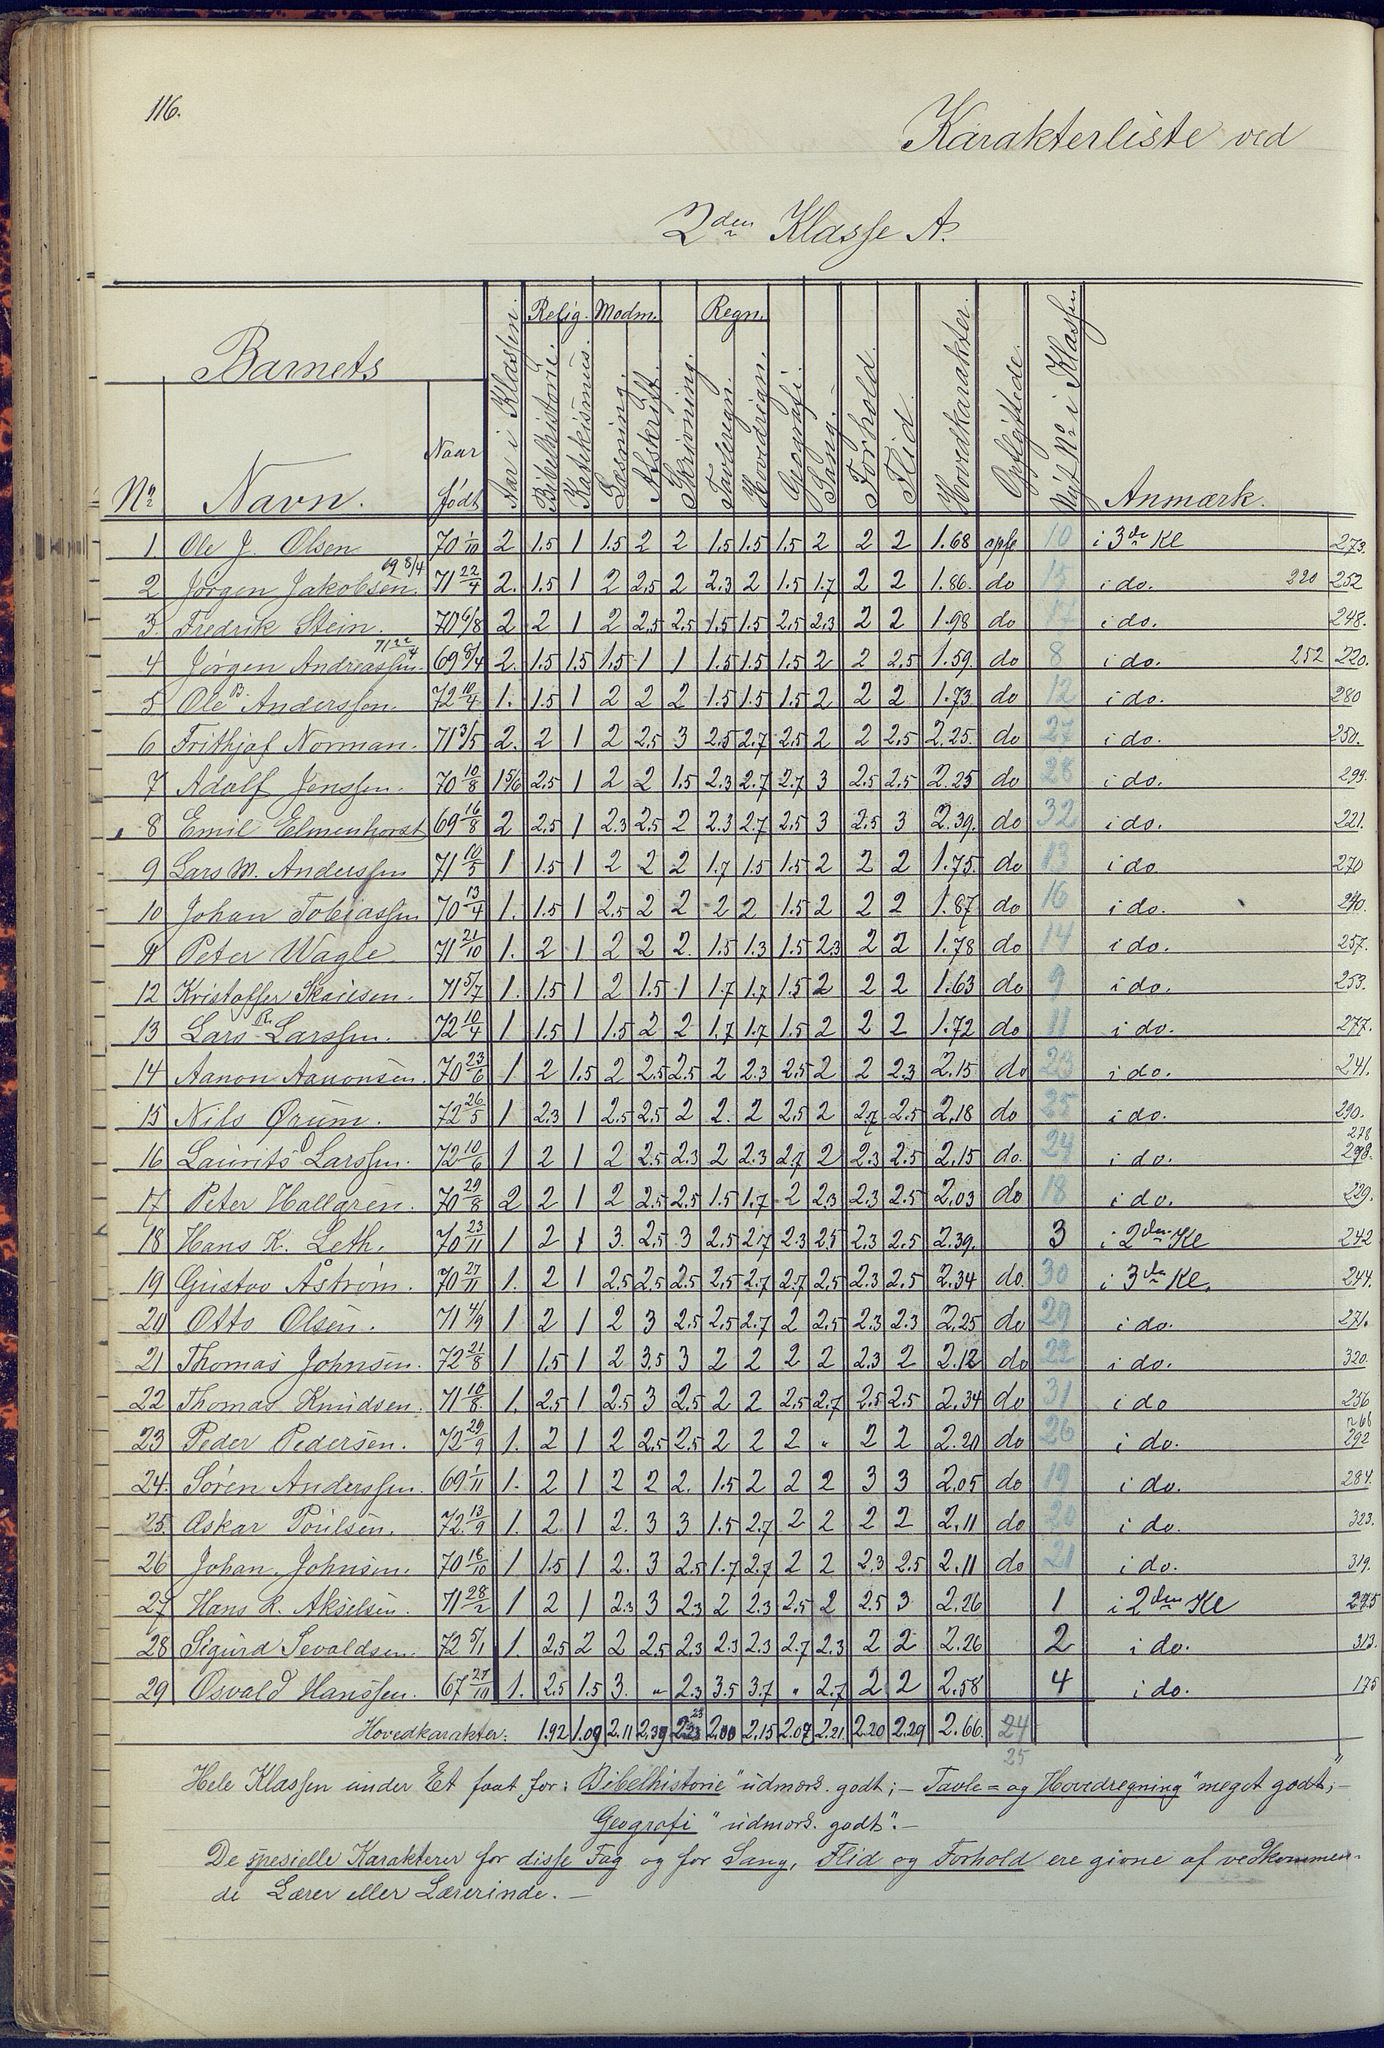 116.
Karakterliste ved
2den Klasse A.
Barnets
Relig. Modm. Regn.
No Navn. Naar født Aar i Klassen. Bibelhistorie. Katekismus. Læsning. Afskrift. Skrivning. Tavleregn. Hovedregn. Geografi. Sang. Forhold. Flid. Hovedkarakter. Opflyttede. Nyt No i Klassen Anmærk.
1. Ole J. Olsen 70 1/10 2 1.5 1 1.5 2 2 1.5 1.5 1.5 2 2 2 1.68 opfl 10 i 3de Kl 273.
69 8/4
2 Jørgen Jakobsen. 71 22/4 2. 1.5 1 2 2.5 2 2.3 2 1.5 1.7 2 2 1.86. do 15 i do. 220 252
3. Fredrik Stein. 70 6/8 2 2 1 2 2.5 2.5 1.5 1.5 2.5 2.3 2 2 1.98 do 17 i do. 248.
71 22/4
4 Jørgen Andreassen. 69 8/4 2. 1.5 1.5 1.5 1 1 1.5 1.5 1.5 2 2 2.5 1.59. do 8 i do. 252 220.
5 Ole B. Anderssen. 72 10/4 1. 1.5 1 2 2 2 1.5 1.5 1.5 2 2 2 1.73 do 12 i do. 280
6 Frithjof Norman. 71 3/5 2. 2 1 2 2.5 3 2.5 2.7 2.5 2 2 2.5 2.25. do 27 i do. 250.
7 Adolf Jenssen. 70 10/8 1 5/6 2.5 1 2 2 1.5 2.3 2.7 2.7 3 2.5 2.5 2.25 do 28 i do. 299.
8 Emil Elmenhorst 69 16/8 2 2.5 1 2.3 2.5 2 2.3 2.7 2.5 3 2.5 3 2.39. do 32 i do. 221.
9 Lars M. Anderssen 71 10/5 1 1.5 1 2 2 2 1.7 1.5 1.5 2 2 2 1.75. do 13 i do 270
10 Johan Tobiassen 70 13/4 1. 1.5 1 2.5 2 2 2 2 1.5 2 2 2 1.87 do 16 i do. 240.
11 Peter Wagle. 71 21/10 1. 2 1 2 2 2. 1.5 1.3 1.5 2.3 2 2 1.78 do 14 i do. 257.
12 Kristoffer Skaiesen. 71 5/7 1. 1.5 1 2 1.5 1 1.7 1.7 1.5 2 2 2 1.63 do 9 i do. 253.
13 Lars R. Larssen. 72 10/4 1 1.5 1 1.5 2 2 1.7 1.7 1.5 2 2 2 1.72 do 11 i do. 277.
14 Aanon Aanonsen. 70 23/6 1 2 1.5 2 2.5 2.5 2 2.3 2.5 2 2 2.3 2.15 do 23 i do. 241.
15 Nils Ørum. 72 26/5 1 2.3 1 2.5 2.5 2 2. 2 2.5 2 2.7 2.5 2.18 do 25 i do. 290.
278
16 Laurits Larssen. 72 10/6 1 2 1 2 2.5 2.3 2 2.3 2.7 2 2.3 2.5 2.15 do. 24 i do. 298.
17 Peter Hallgren. 70 29/8 2 2 1 2 2.5 2.5 1.5 1.7 2 2.3 2.3 2.5 2.03 do 18 i do. 229.
18 Hans K. Leth. 70 23/11 1 2 1 3. 2.5 3 2.5 2.7 2.3 2.5 2.3 2.5 2.39. 3 i 2den Kl 242
19 Gustav Åström. 70 27/11 1. 2 1 2.5 2.5 2.5 2.5 2.7 2.7 2.5 2.3 2.5 2.34 do. 30 i 3de Kl. 244.
20 Otto Olsen. 71 4/9 1 2 1 2 3 2.5 2.5 2.7 2 2.5 2.3 2.3 2.25 do 29 i do. 271.
21 Thomas Johnsen. 72 21/8 1 1.5 1 2 3.5 3 2 2 2 2 2.3 2 2.12 do 22 i do. 320.
22 Thomas Knudsen. 71 10/8. 1. 2.5 1 2.5 3 2.5 2 2 2.5 2.7 2.5 2.5 2.34 do 31 i do 256
266
23 Peder Pedersen. 72 29/9 1. 2 1 2 2.5 2.5 2 2 2 " 2 2 2.20 do 26 i do. 292
24. Søren Anderssen. 69 1/11 1. 2 1 2 2 2. 1.5 2 2 2 3 3 2.05 do 19 i do. 284.
25. Oskar Poulsen. 72 13/9 1. 2 1 2. 3 3 1.5 2.7 2 2 2 2 2.11 do 20 i do. 323.
26 Johan Johnsen. 70 18/10 1 1.5 1 2. 3 2.5 1.7 2.7 2 2 2.3 2.5 2.11 do 21 i do. 319.
27 Hans R. Akselsen. 71 28/2 1 2 1 2.3 3 2.3 2 2.3 2.5 2 2.5 3 2.26 1 i 2den Kl 295
28 Sigurd Sevaldsen. 72 5/1 1. 2.5 2 2 2.5 2.3 2.3 2.3 2.7 2.3 2 2 2.26 2 i do. 313.
29 Osvald Hanssen. 67 27/10 1. 2.5 1.5 3. " 2.3 3.5 3.7 " 2.7 2 2 2.58 4 i do. 175
Hovedkarakter: 1.92 1.09 2.11 2.39 2.23 2.00 2.15 2.07 2.21. 2.20 2.29 2.66. 24
25
Hele Klassen under Et faat for: Bibelhistorie "udmærk. godt; — Tavle= og Hovedregning "meget godt"; —
Geografi "udmærk. godt". —
De spesielle Karakterer for disse Fag og for Sang, Flid og Forhold ere givne af vedkommen-
de Lærer eller Lærerinde. —